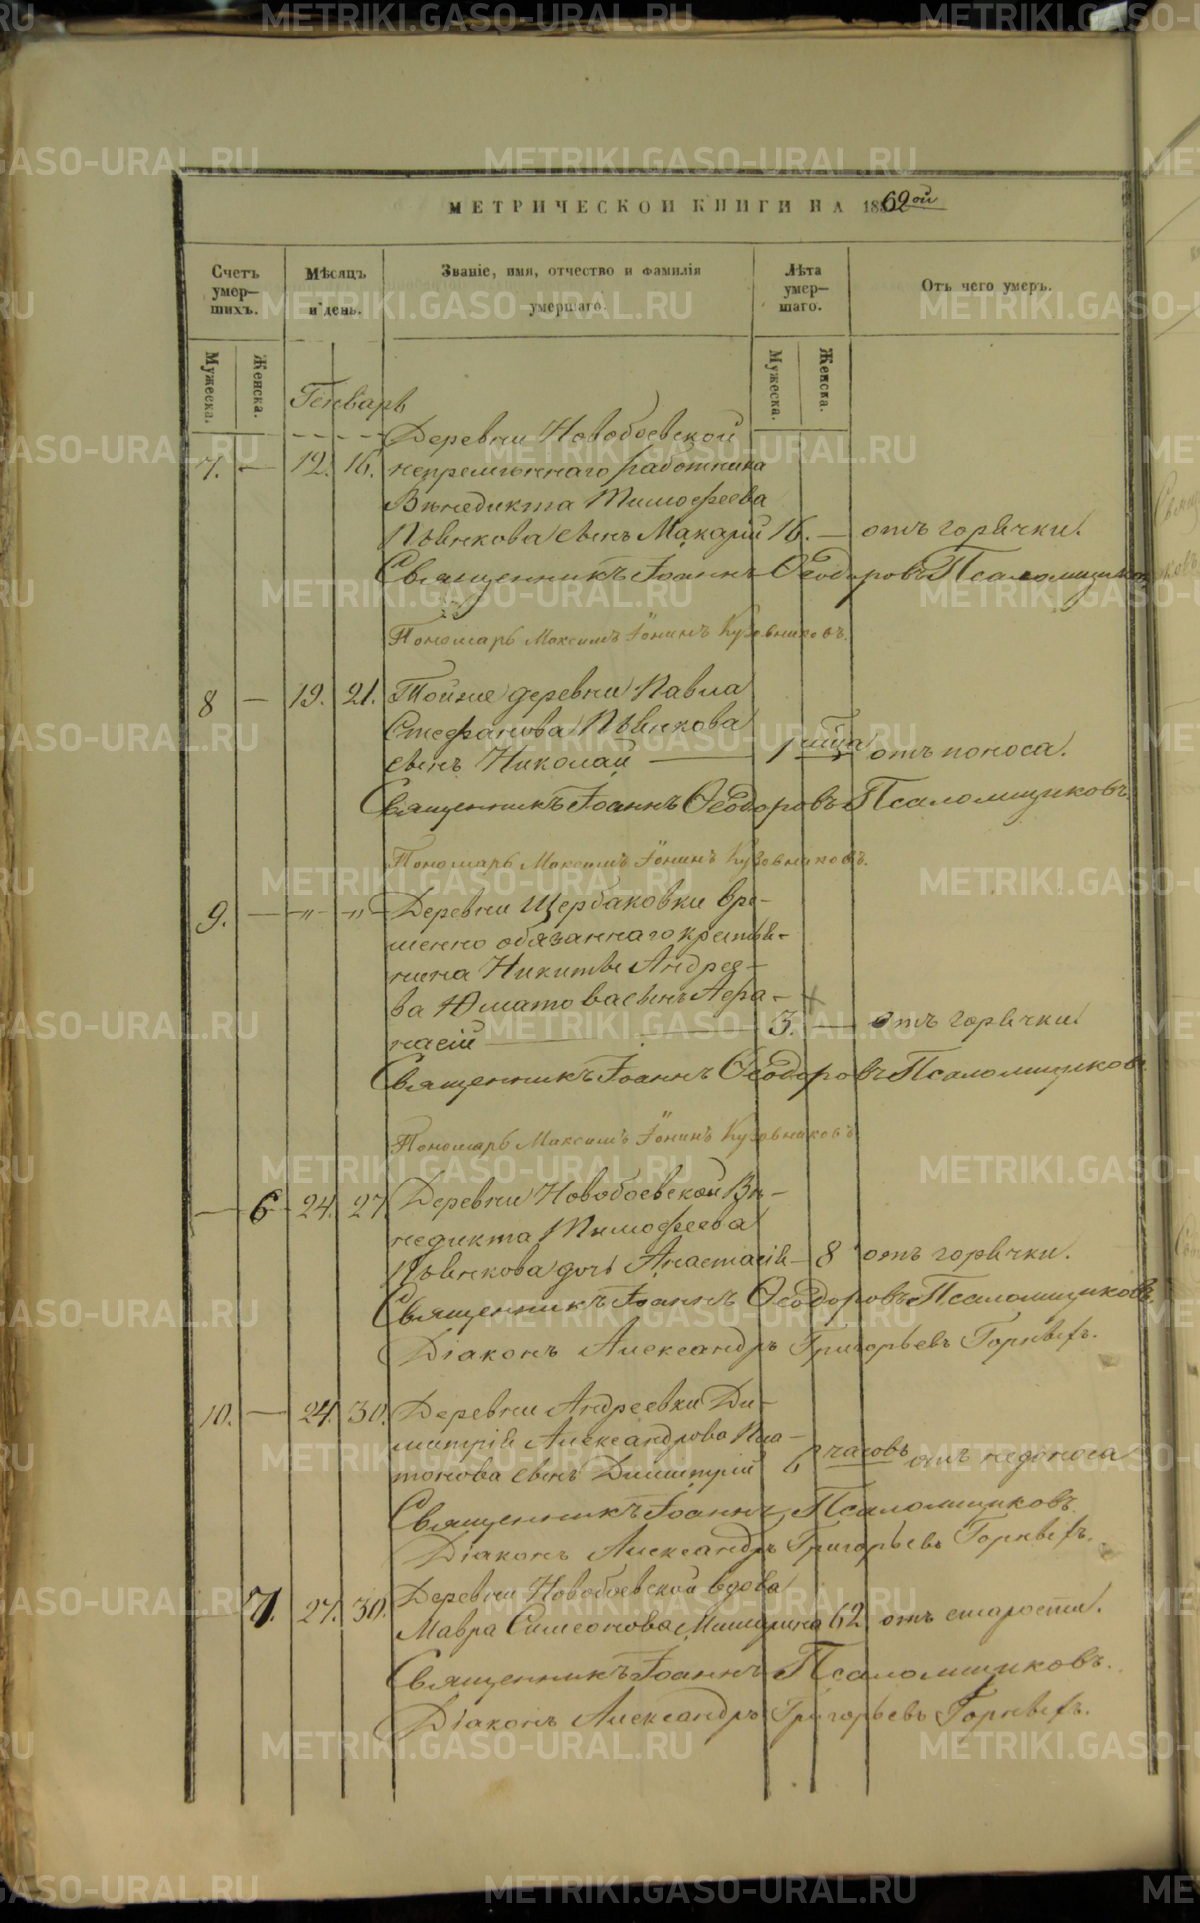 МЕТРИЧЕСКОЙ КНИГИ НА 1862ой
Счетъ умер—шихъ.
Мѣсяцъ и день.
Званіе, имя, отчество и фамилія умершаго.
Лѣта умер—шаго.
Отъ чего умеръ.
Мужеска.
Женска.
Мужеска.
Женска.
Генварь
Деревни Новобоевской
7. — 12. 16. непремѣннаго работника
Венедикта Тимофеева
Пьянкова сынъ Макарій 16. — отъ горячки.
Священникъ Іоаннъ Ѳеодоровъ Псаломщиковъ
Пономарь Максимъ Іонинъ Кузовниковъ.
8 — 19. 21. Тойже деревни Павла
Стефанова Пьянкова
сынъ Николай — 1 отъ поноса.
Священникъ Іоаннъ Ѳеодоровъ Псаломщиковъ
Пономарь Максимъ Іонинъ Кузовниковъ.
9. — „ „ Деревни Щербаковки вре-
менно обязаннаго крестья-
нина Никиты Андрее-
ва Юматова сынъ Аѳа-
насій — 3. — отъ горячки
Священникъ Іоаннъ Ѳеодоровъ Псаломщиковъ
Пономарь Максимъ Іонинъ Кузовниковъ
— 6 24. 27 Деревни Новобоевской Ве-
недикта Тимофеева
Пьянкова дочь Анастасія — 8 отъ горячки.
Священникъ Іоаннъ Ѳеодоровъ Псаломщиковъ.
Діаконъ Александръ Григорьевъ
10. — 24. 30. Деревни Андреевки Ди-
митрія Александрова Пла-
тонова сынъ Димитрій 6 часовъ отъ недоноса
Священникъ Іоаннъ Псаломщиковъ.
Діаконъ Александръ Григорьевъ
7. 27. 30. Деревни Новобоевской вдова
Мавра Симеонова 62 отъ старости.
Священникъ Іоаннъ Псаломщиковъ.
Діаконъ Александръ Григорьевъ
METRIKI.GASO-URAL.RU